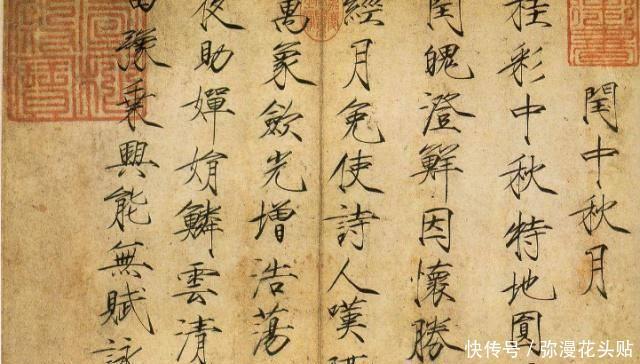 閏中秋月
桂彩中秋特地圓
閏魄澄鮮因懷勝
經月免使詩人嘆
萬象斂光增浩蕩
夜助嬋娟鱗雲清
豫乘興能無賦詠
快传号／弥漫花头贴